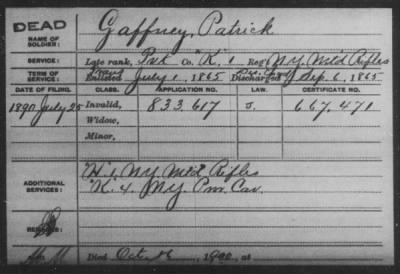 DEAD
NAME OF SOLDIER: Gaffney, Patrick
SERVICE: Late rank, Pvt Co. "K", 1 Reg't N.Y. Mt'd Rifles
TERM OF SERVICE: Enlisted July 1, 1865 Discharged Sep. 6, 1865
DATE OF FILING. CLASS. APPLICATION NO. LAW. CERTIFICATE NO.
1890 July 25 Invalid, 833.617 J. 667.471
Widow,
Minor,
ADDITIONAL SERVICES: H. 1. N.Y. Mt'd Rifles
"K". 4. N.Y. Pro. Cav.
REMARKS:
Died Oct. 1900, at